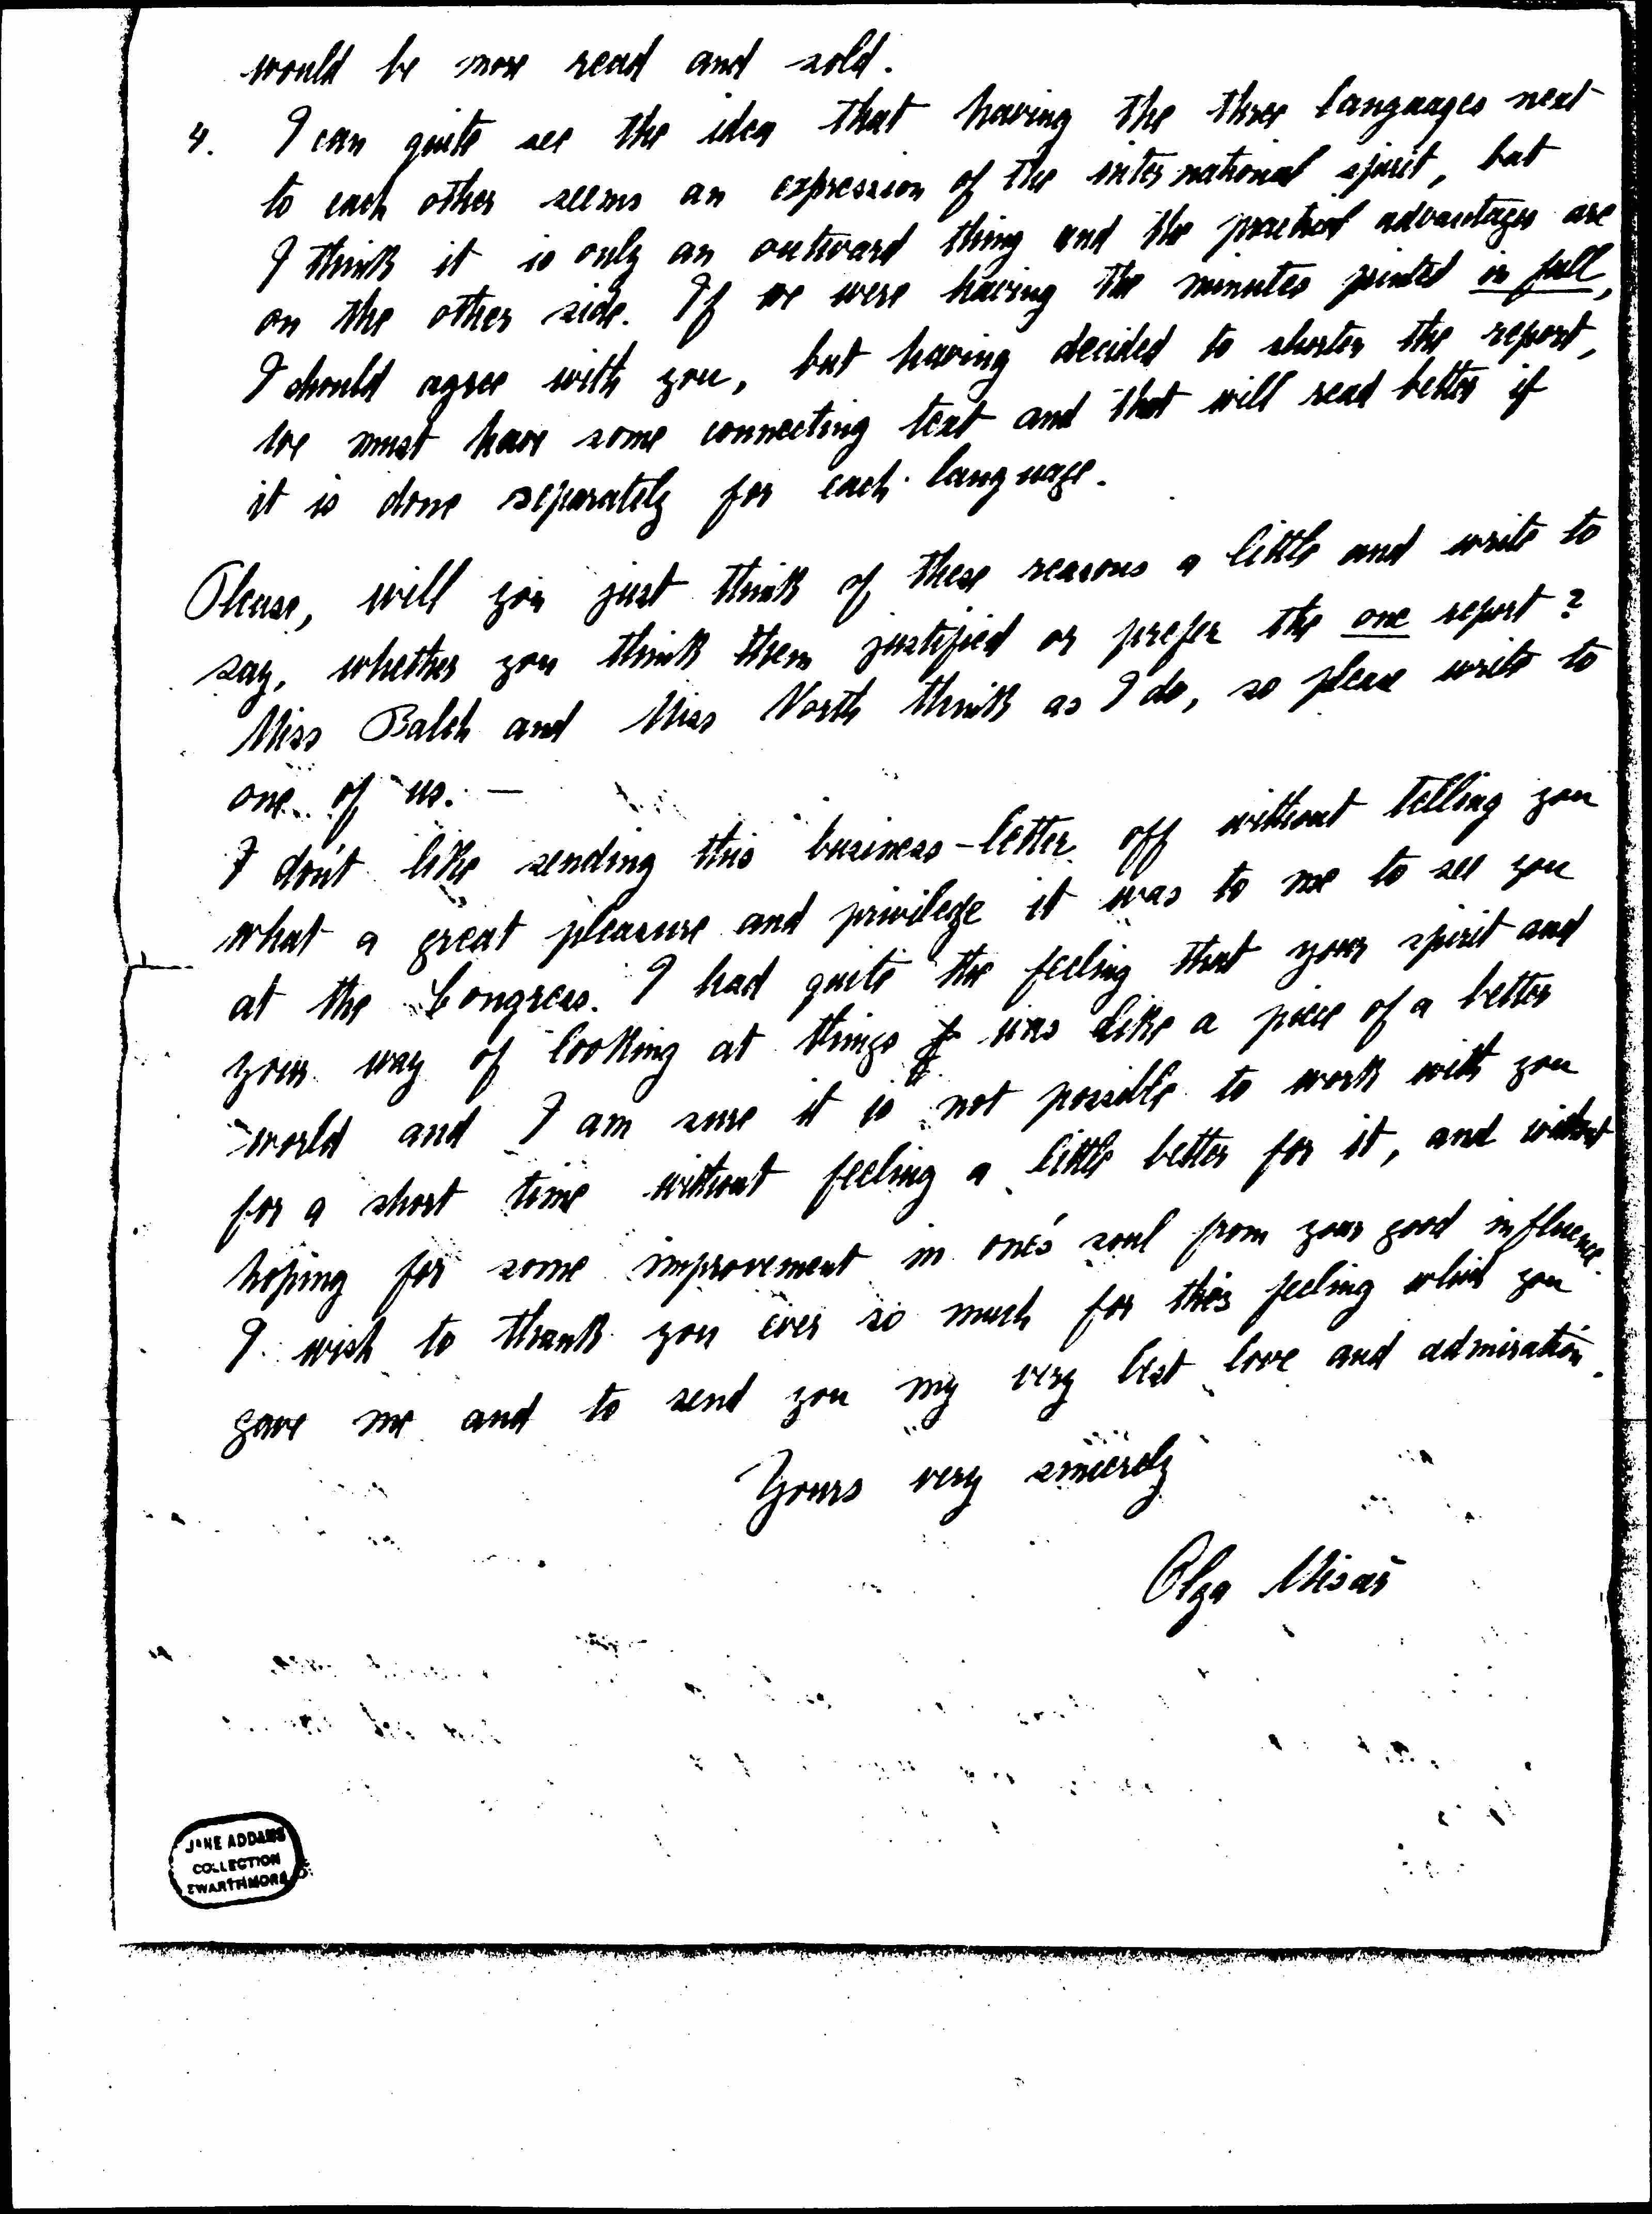 would be more read and sold.
4. I can quite see the idea that having the three languages next
to each other seems an expression of the international spirit, but
I think it is only an outward thing and the practical advantages are
on the other side. If we were having the minutes printed in full,
I should agree with you, but having decided to shorten the report,
we must have some connecting text and that will read better if
it is done separately for each language.
Please, will you just think of these reasons a little and write to
say, whether you think them justified or prefer the one report?
Miss Balch and Miss North think as I do, so please write to
one of us. —
I don't like sending this business-letter off without telling you
what a great pleasure and privilege it was to me to see you
at the Congress. I had quite the feeling that your spirit and
your way of looking at things was like a piece of a better
world and I am sure it is not possible to work with you
for a short time without feeling a little better for it, and without
hoping for some improvement in one's soul from your good influence.
I wish to thank you ever so much for this feeling which you
gave me and to send you my very best love and admiration.
Yours very sincerely
Olga Misař
JANE ADDAMS
COLLECTION
SWARTHMORE